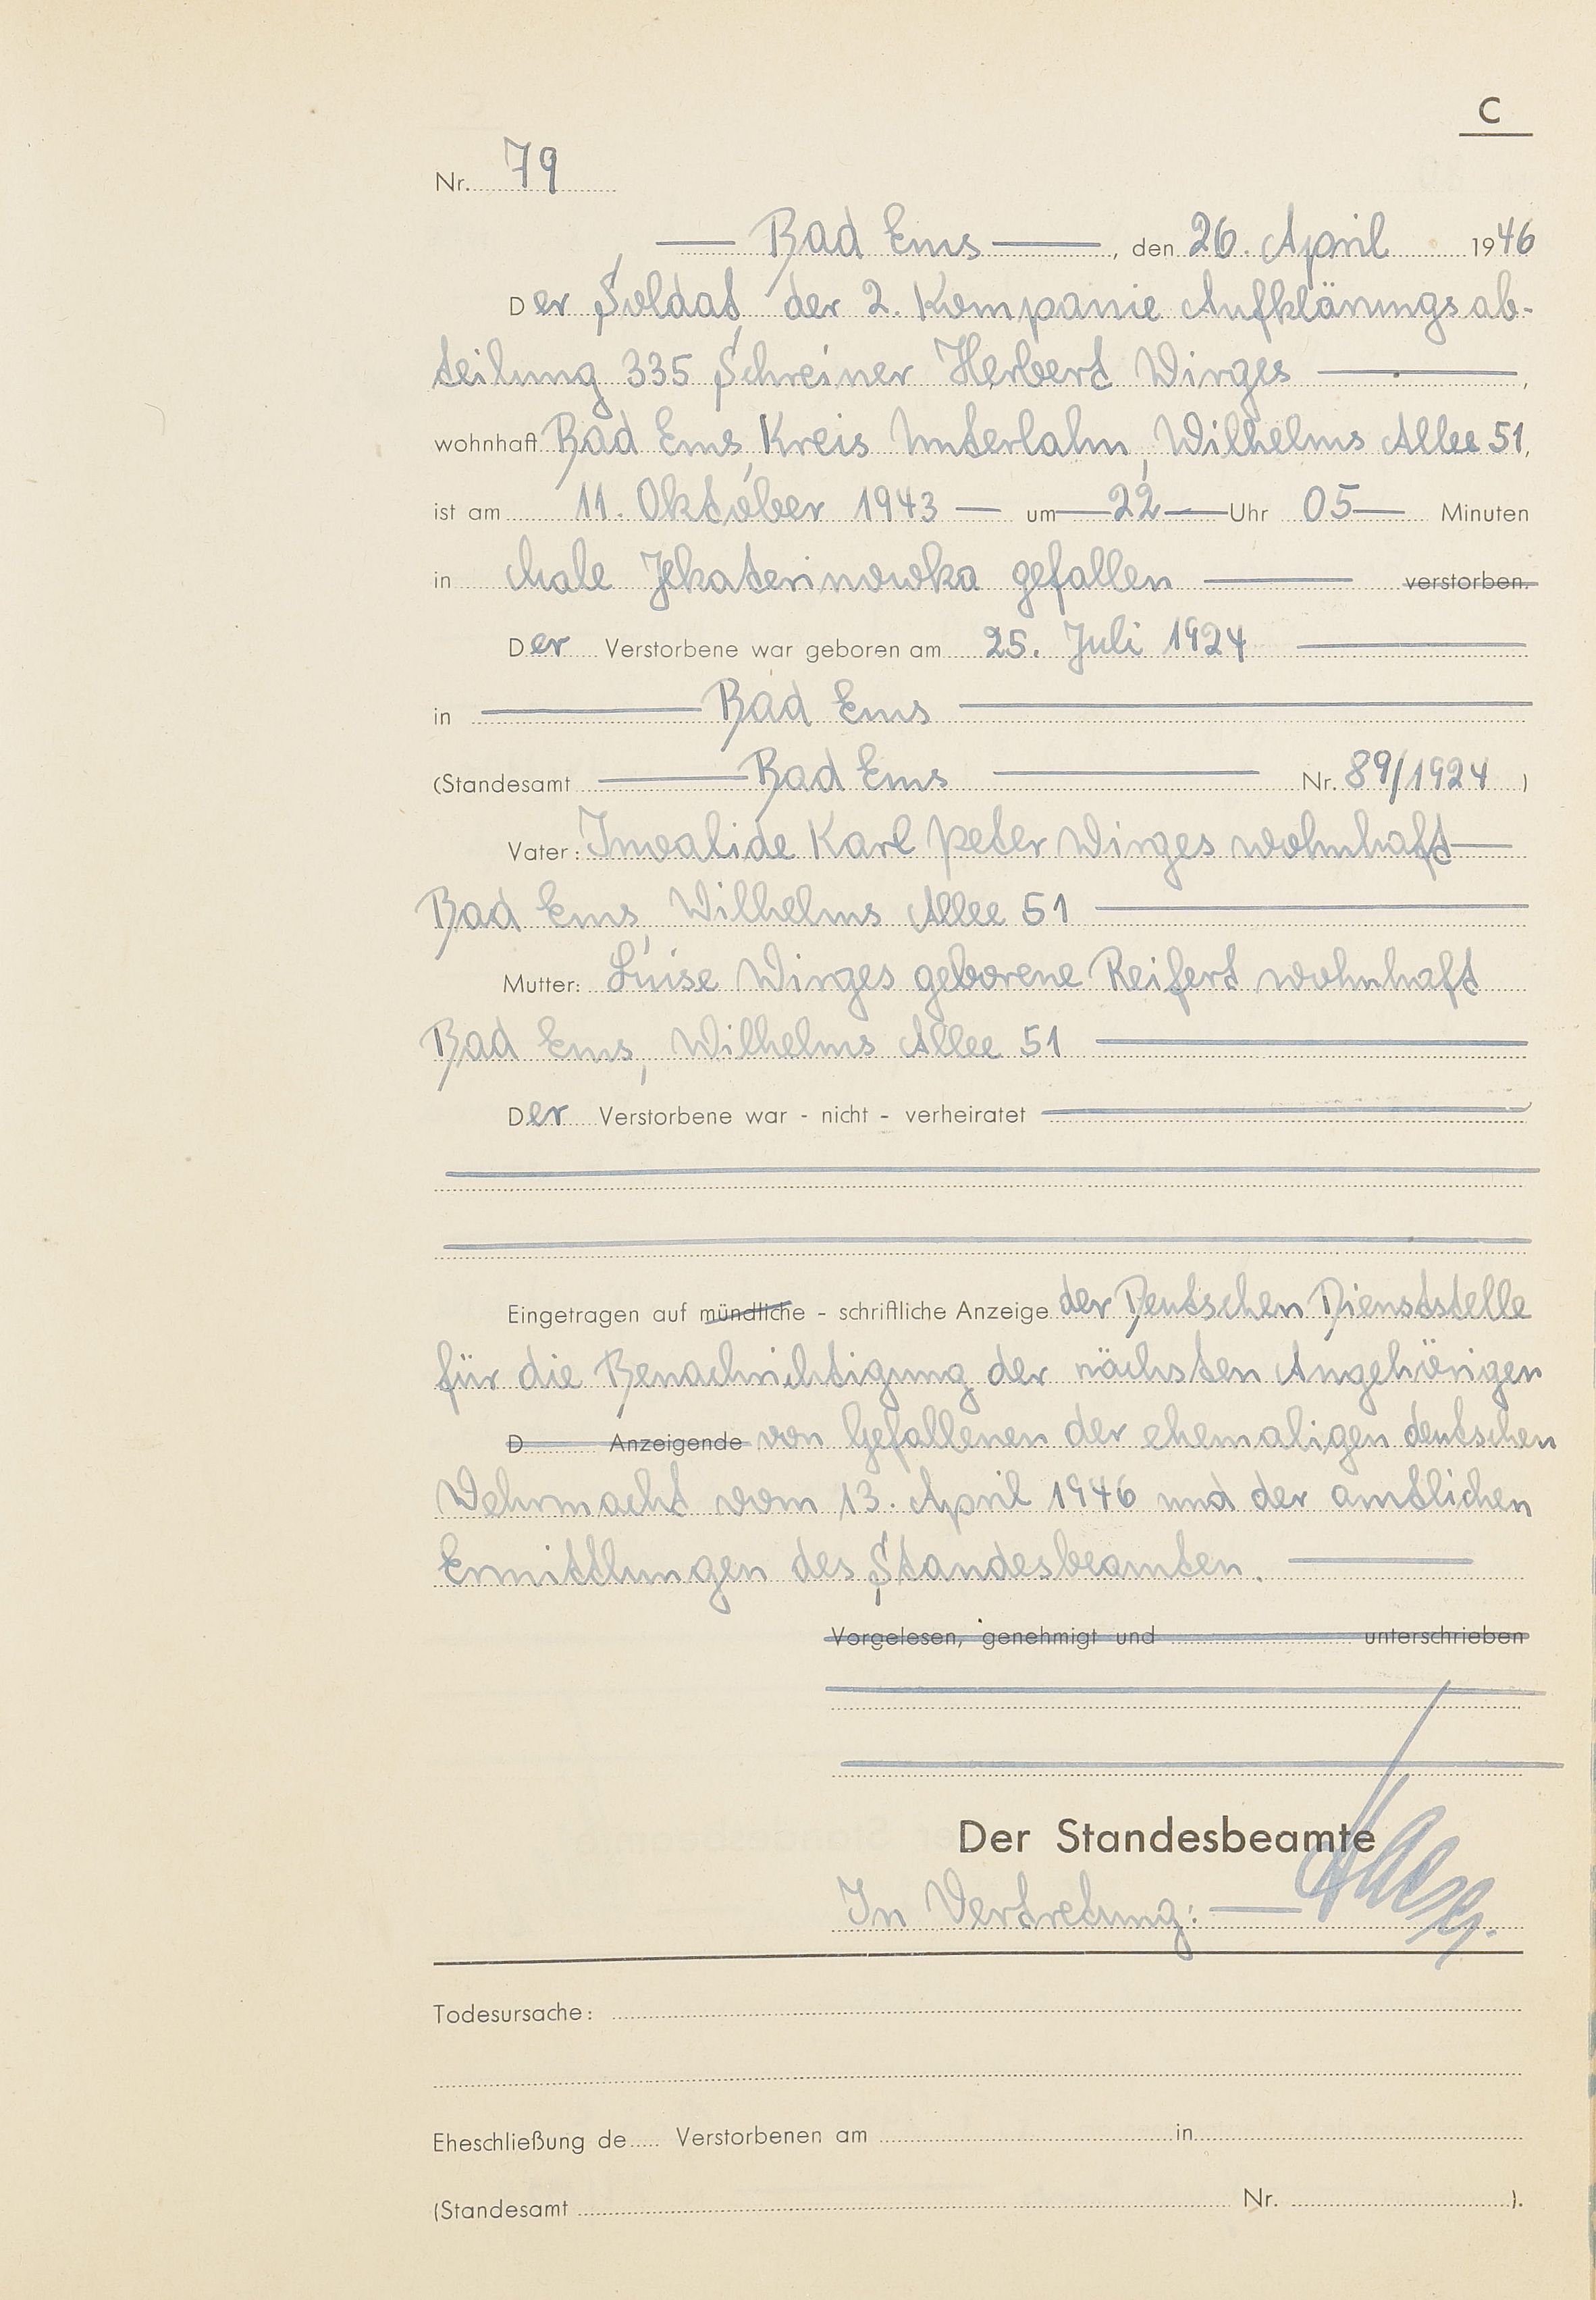 C
Nr. 79
Bad Ems, den 26. April 1946
Der Soldat der 2. Kompanie Aufklärungsab-
teilung 335, Schreiner Herbert Wirges,
wohnhaft Bad Ems, Kreis Unterlahn, Wilhelms Allee 51,
ist am 11. Oktober 1943 um 22 Uhr 05 Minuten
in Male Jekaterinowka gefallen verstorben.
Der Verstorbene war geboren am 25. Juli 1924
in Bad Ems
(Standesamt Bad Ems Nr. 89/1924)
Vater: Invalide Karl Peter Wirges wohnhaft
Bad Ems, Wilhelms Allee 51
Mutter: Luise Wirges geborene Reifert wohnhaft
Bad Ems, Wilhelms Allee 51
Der Verstorbene war - nicht - verheiratet
Eingetragen auf mündliche - schriftliche Anzeige der Deutschen Dienststelle
für die Benachrichtigung der nächsten Angehörigen
D Anzeigende von Gefallenen der ehemaligen deutschen
Wehrmacht vom 13. April 1946 und der amtlichen
Ermittlungen des Standesbeamten.
Vorgelesen, genehmigt und unterschrieben
Der Standesbeamte
In Vertretung:
Todesursache:
Eheschließung de Verstorbenen am in
(Standesamt Nr. ).